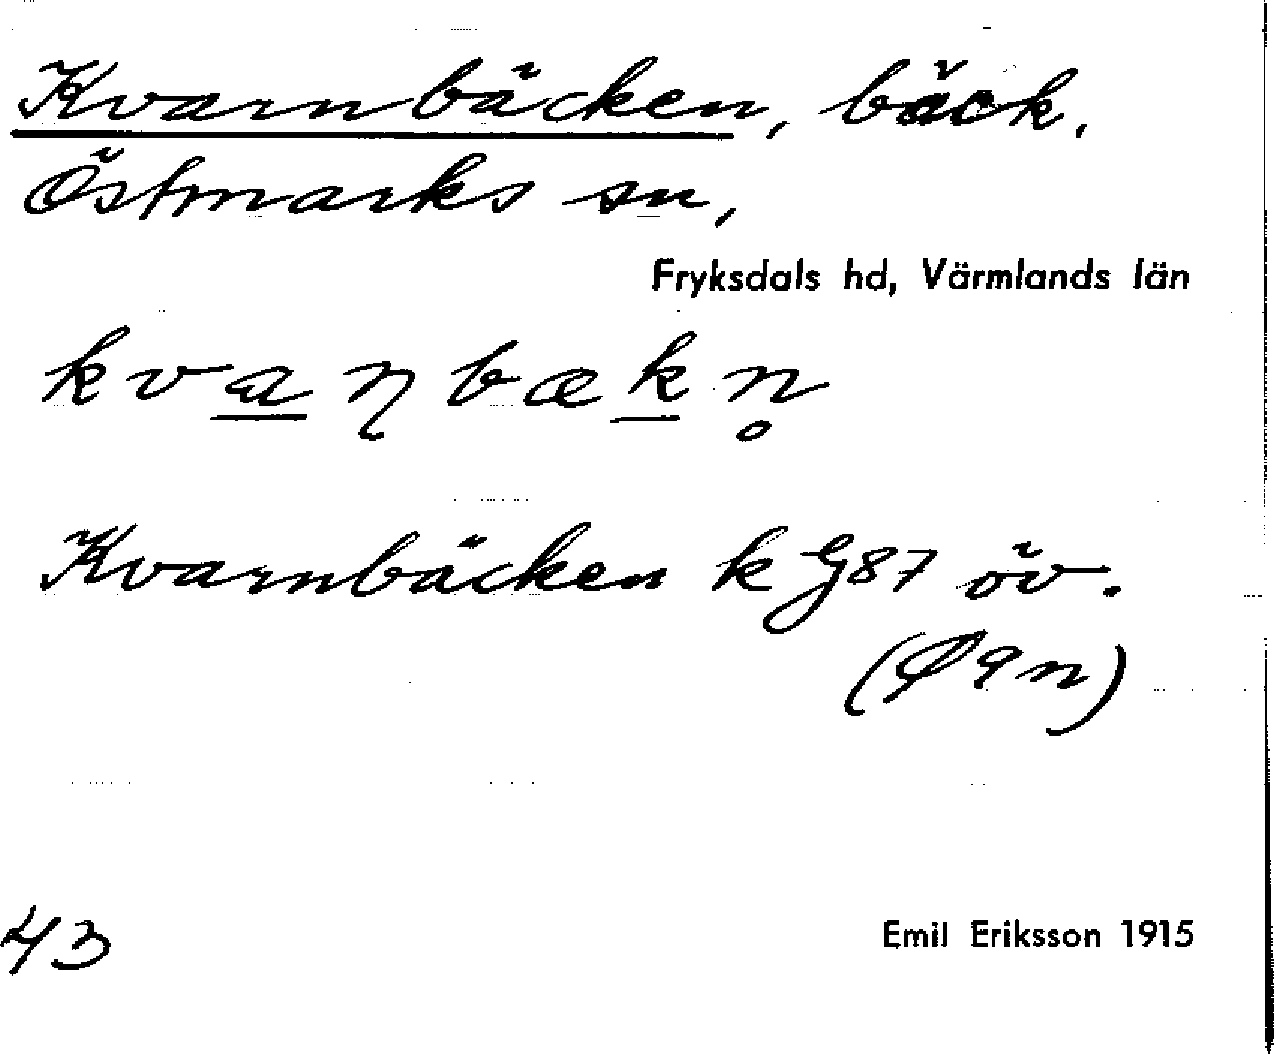 Kvarnbäcken, bäck.
Östmarks sn,
Fryksdals hd, Värmlands län
kvaɳbækn̥
Kvarnbäcken k G87 öv.
43
Emil Eriksson 1915